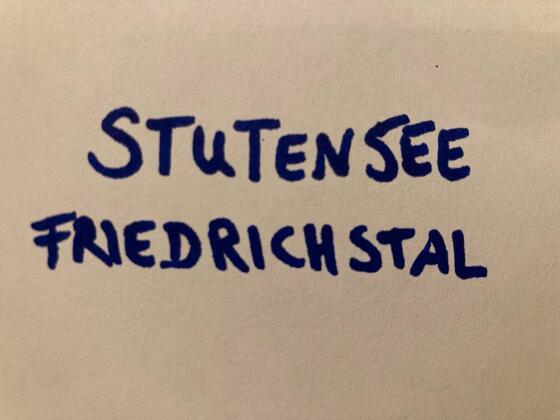 STUTENSEE
FRIEDRICHSTAL